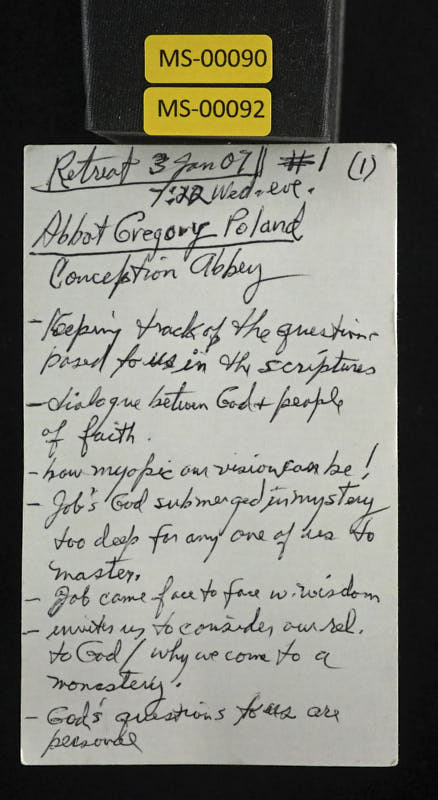 MS-00090
MS-00092
Retreat 3 Jan 07 || #1 (1)
7:22 Wed. eve.
Abbot Gregory Poland
Conception Abbey
- Keeping track of the questions
posed to us in the scriptures
- dialogue between God + people
of faith.
- how myopic our vision can be!
- Job's God submerged in mystery
too deep for any one of us to
master.
- Job came face to face w. wisdom
- invites us to consider our rel.
to God / why we come to a
monastery.
- God's questions to us are
personal